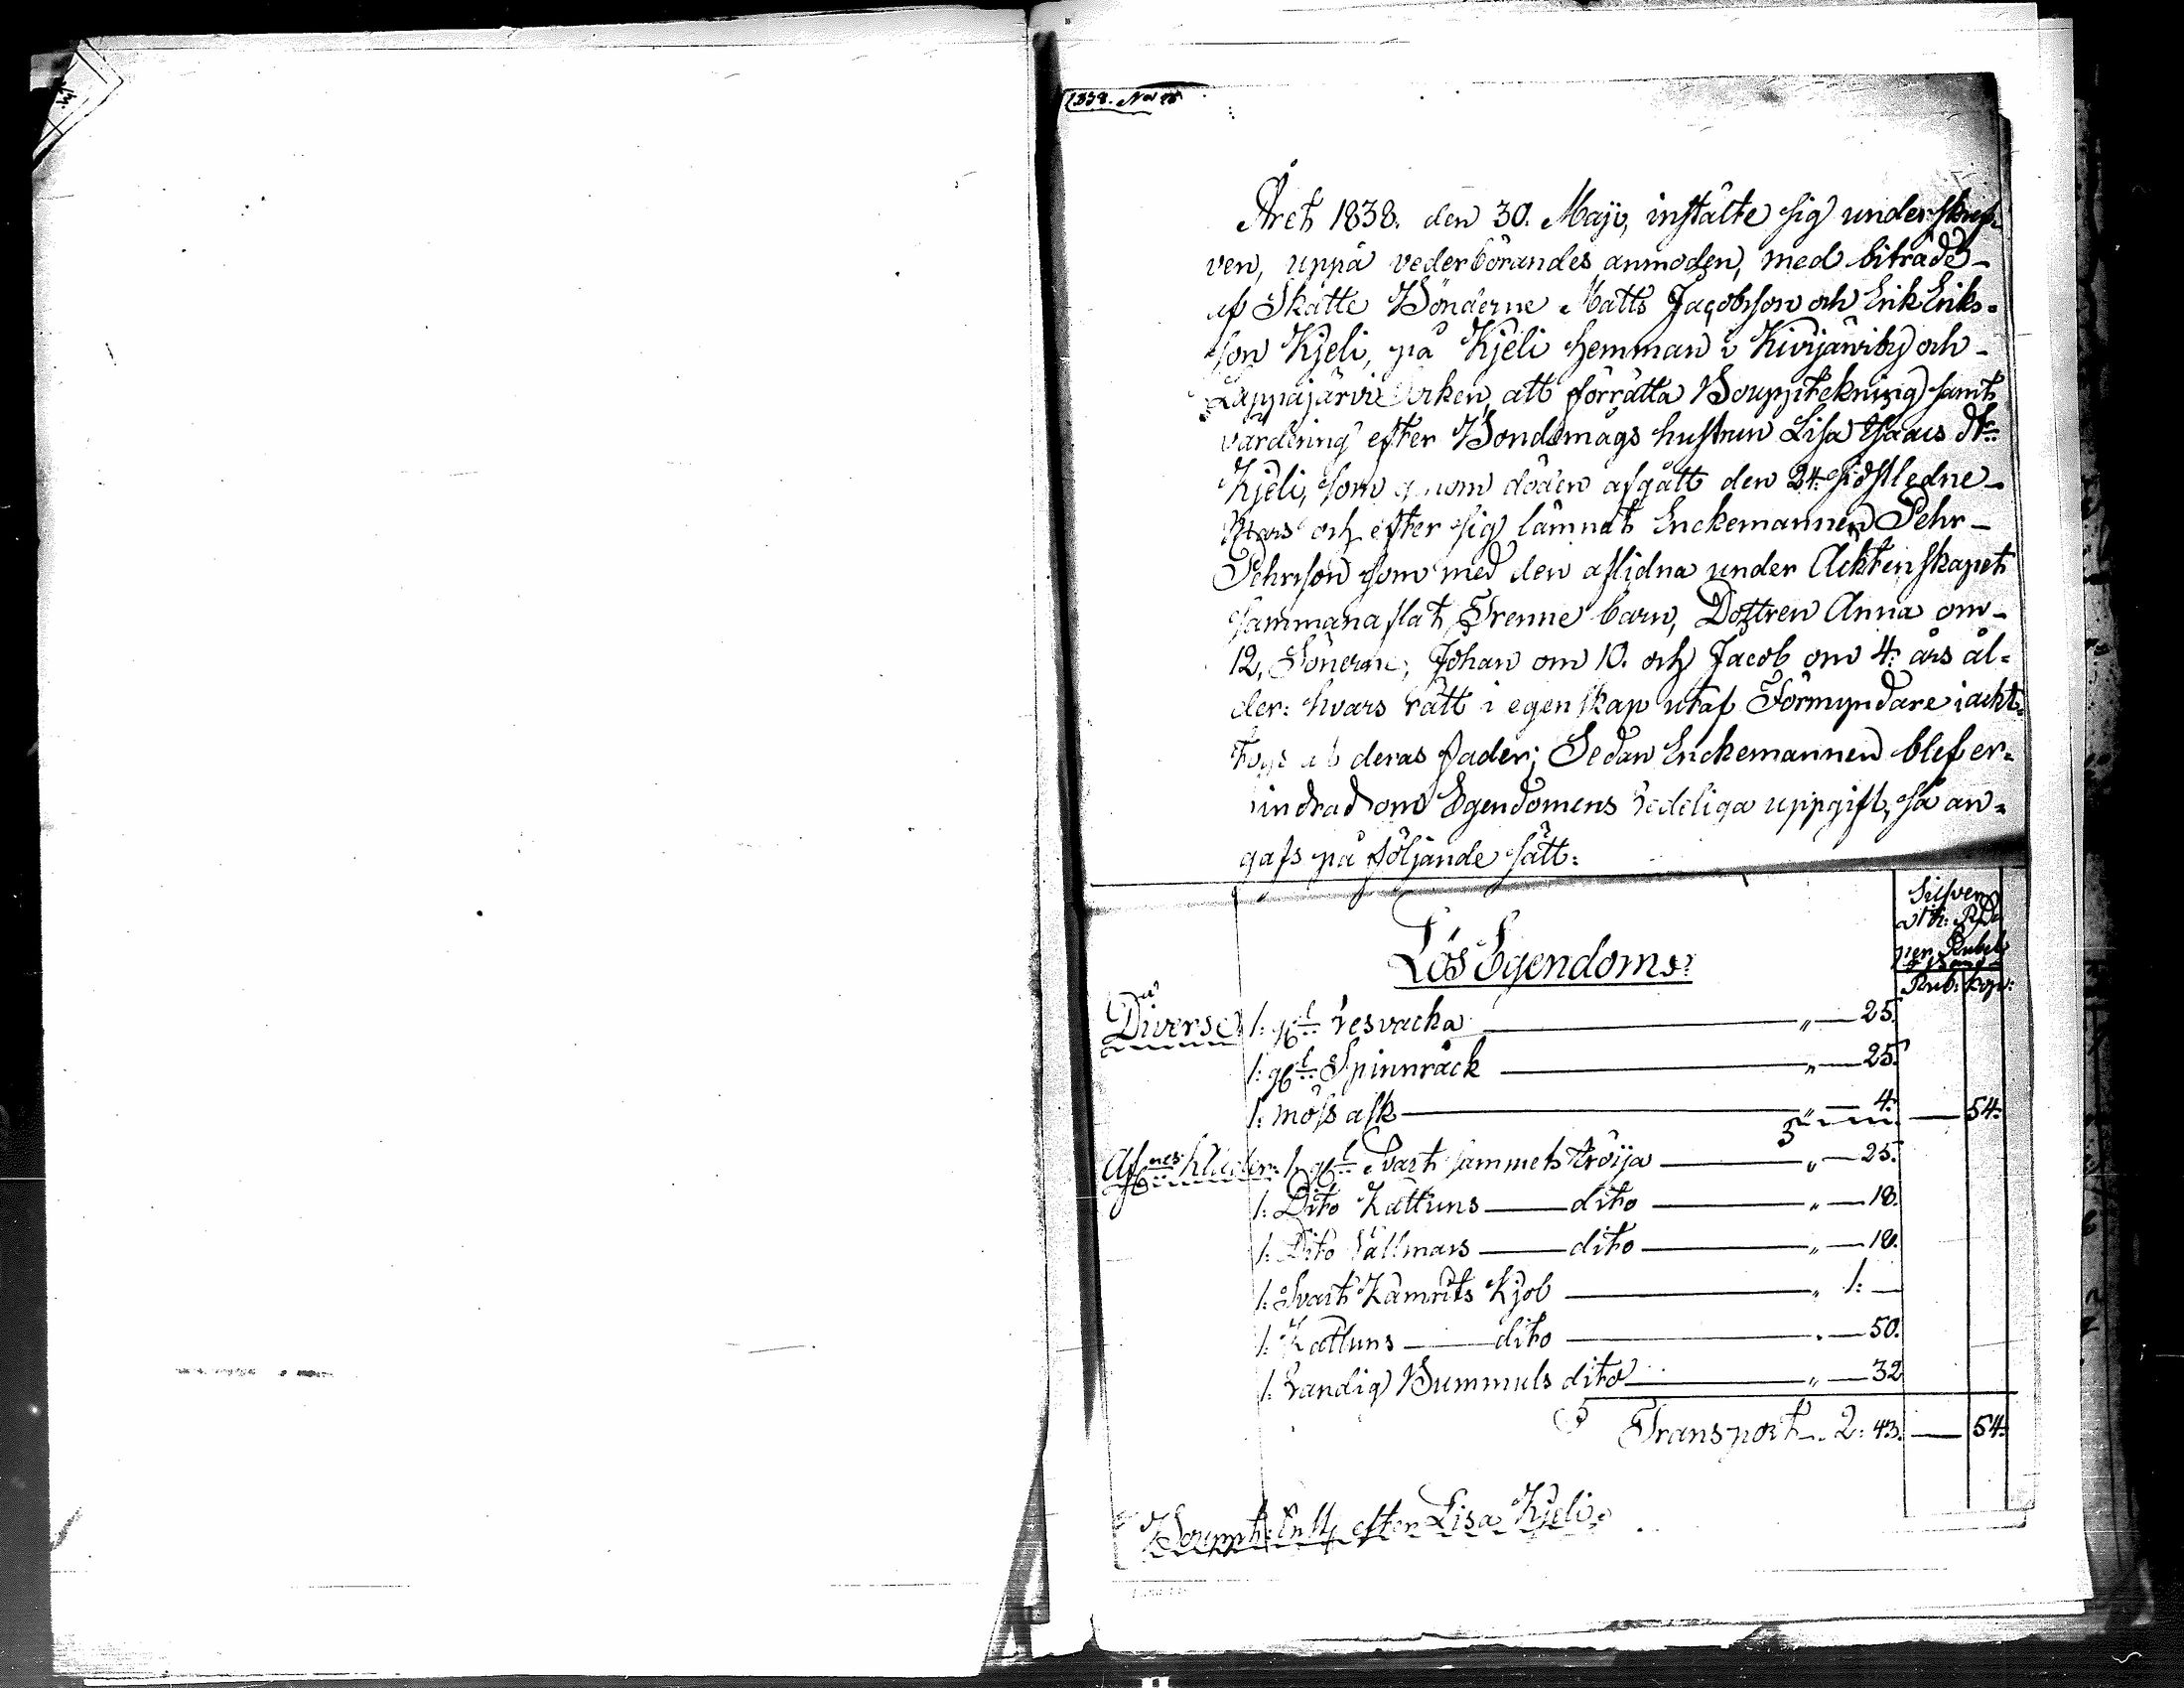 1838. No 18
Året 1838. den 30. Maji, instälte sig underskref-
ven, uppå vederbörandes anmoden, med biträde
af Skatte Bönderne Matts Jacobsson och Erik Eriks-
son Kjeli, på Kjeli hemman i Kivijärviby och
Lappajärvi Socken, att förrätta Bouppitekning samt
värdering efter Bondemågs hustrun Lisa Isaacs dtr
Kjeli, som genom döden afgått den 24. sidstledne
Mars och efter sig lämnat Enckemannen Pehr
Pehrsson som med den aflidna under Äcktenskapet
sammanaflat Trenne barn, Dottren Anna om
12, Sönerne, Johan om 10. och Jacob om 4. års ål-
der: hvars rätt i egenskap utaf Förmyndare iackt-
togs af deras fader; Sedan Enckemannen blef er-
indrad om Egendomens redeliga uppgift, så an-
gafs på följande sätt:
Silfver
per Rubel
Rub: Kop:
Lös Egendom:
Diverse 1: gl resvacka " — 25.
1: gl Spinnråck " — 25.
1: möss ask " — 4. — 54.
Gångkläder: 1: gl Svart sammets tröija " — 25.
1: Dito Kattuns — dito " — 18.
1: Dito Vallmars — dito " — 18.
1: Svart Kamrits Kjol " 1: —
1: Kattuns — dito " — 50.
1: Randig Bummuls dito " — 32
Transport 2: 43. — 54.
Bouppt: Instr: efter Lisa Kjeli.